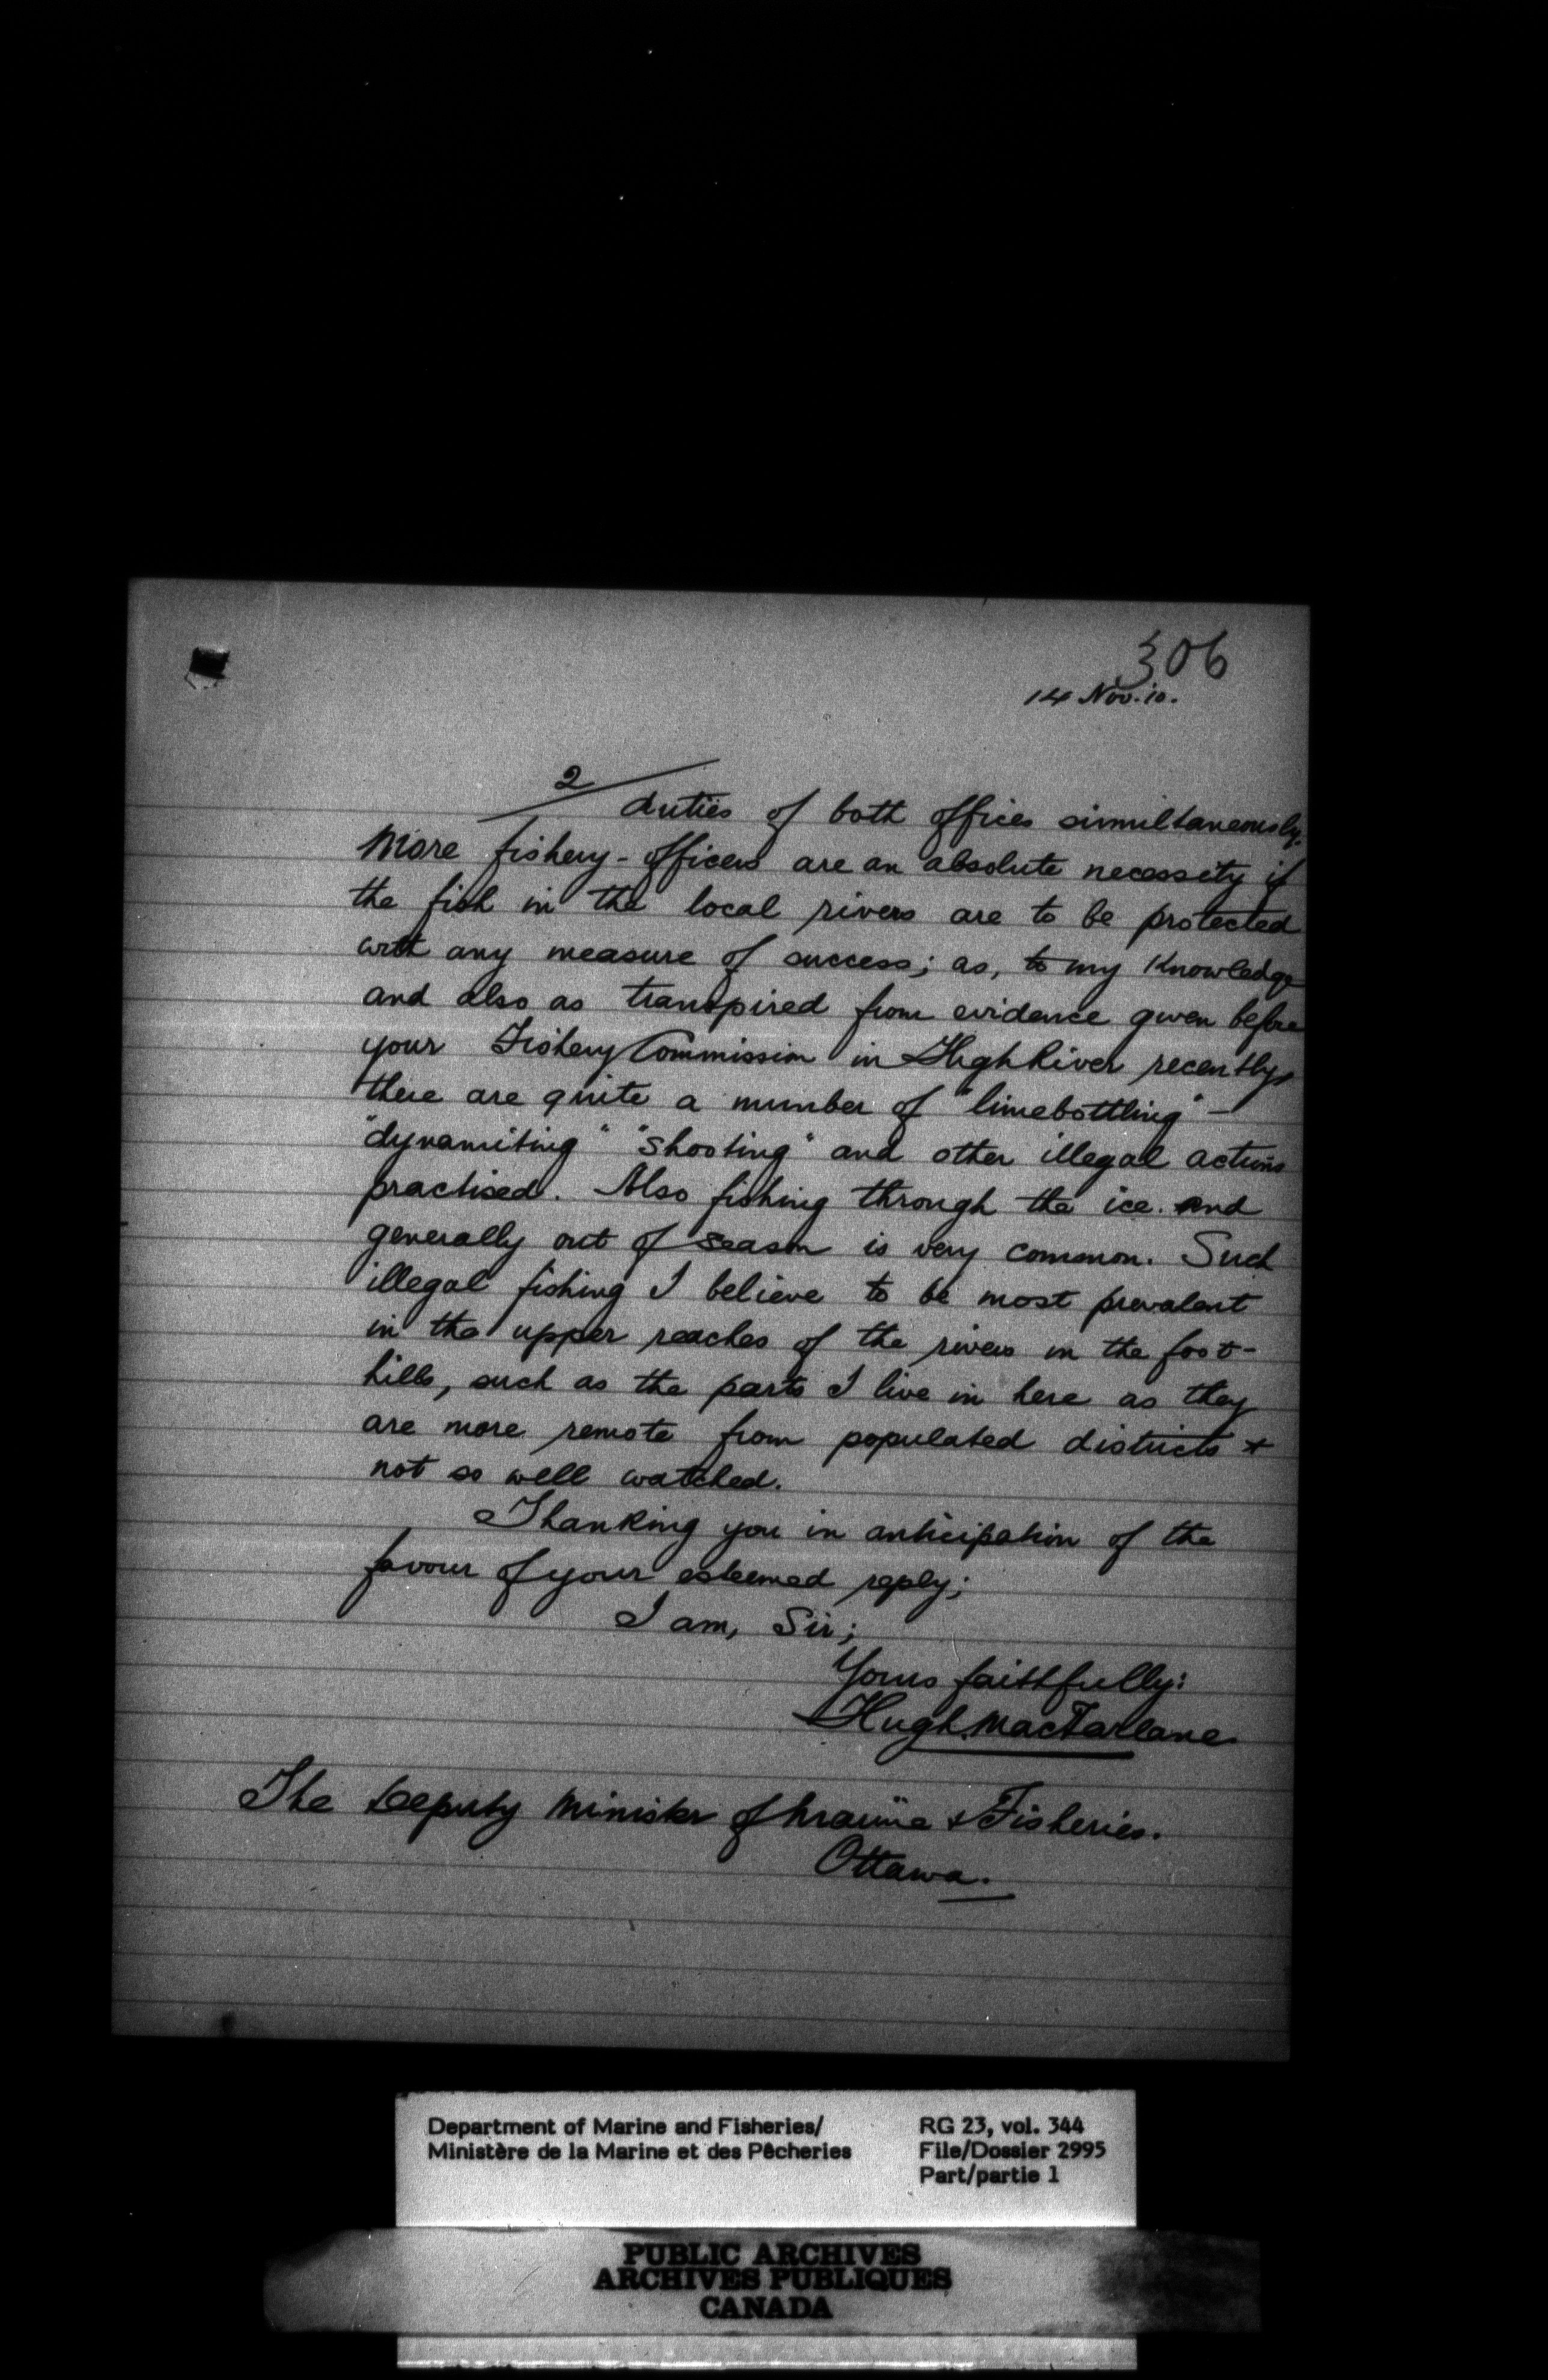 306
14 Nov. 10.
2/ duties of both offices simultaneously.
More fishery-officers are an absolute necessity if
the fish in the local rivers are to be protected
with any measure of success; as, to my knowledge
and also as transpired from evidence given before
your Fishery Commission in High River recently,
there are quite a number of "limebottling" -
"dynamiting" "shooting" and other illegal actions
practised. Also fishing through the ice and
generally out of season is very common. Such
illegal fishing I believe to be most prevalent
in the upper reaches of the rivers in the foot-
hills, such as the parts I live in here as they
are more remote from populated districts &
not so well watched.
Thanking you in anticipation of the
favour of your esteemed reply;
I am, Sir;
Yours faithfully:
Hugh MacFarlane
The Deputy Minister of Marine & Fisheries.
Ottawa.
Department of Marine and Fisheries/ RG 23, vol. 344
Ministère de la Marine et des Pêcheries File/Dossier 2995
Part/partie 1
PUBLIC ARCHIVES
ARCHIVES PUBLIQUES
CANADA